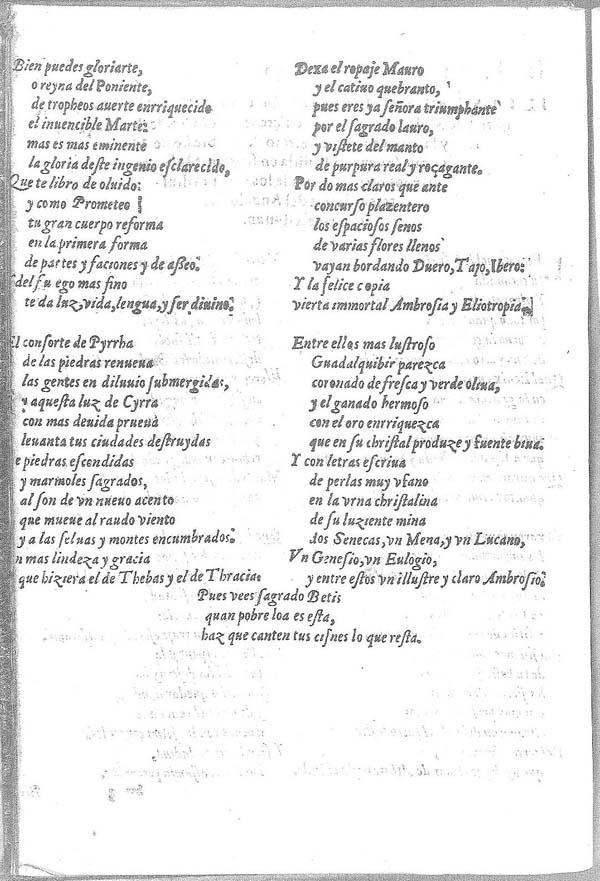 Bien puedes gloriarte,
o reyna del Poniente,
de tropheos auerte enrriquecido
el inuencible Marte:
mas es mas eminente
la gloria deste ingenio esclarecido,
Que te libro de oluido:
y como Prometeo
tu gran cuerpo reforma
en la primera forma
de partes y faciones y de asseo:
del fuego mas fino
te da luz, vida, lengua, y ser diuino.
El consorte de Pyrrha
de las piedras renueua
las gentes en diluuio submergidas,
y aquesta luz de Cyrra
con mas deuida prueua
leuanta tus ciudades destruydas
e piedras escendidas
y marmoles sagrados,
al son de vn nueuo acento
que mueue al raudo viento
y a las seluas y montes encumbrados:
n mas lindeza y gracia
que hiziera el de Thebas y el de Thracia.
Dexa el ropaje Mauro
y el catiuo quebranto,
pues eres ya señora triumphante
por el sagrado lauro,
y vistete del manto
de purpura real y roçagante.
Por do mas claros que ante
concurso plazentero
los espaciosos senos
de varias flores llenos
vayan bordando Duero, Tajo, Ibero:
Y la felice copia
vierta immortal Ambrosia y Eliotropia.
Entre ellos mas lustroso
Guadalquibir parezca
coronado de fresca y verde oliua,
y el ganado hermoso
con el oro enrriquezca
que en su christal produze y fuente biua:
Y con letras escriua
de perlas muy vfano
en la vrna christalina
de su luziente mina
dos Senecas, vn Mena, y vn Lucano,
Vn Genesio, vn Eulogio,
y entre estos vn illustre y claro Ambrosio.
Pues vees sagrado Betis
quan pobre loa es esta,
haz que canten tus cisnes lo que resta.